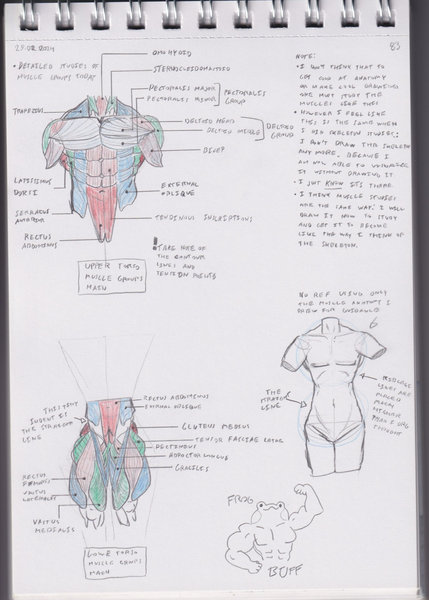 29.02.2024
83
• DETAILED STUDIES OF
MUSCLE GROUPS TODAY
OMOHYOID
STERNOCLEIDOMASTOID
PECTORALIS MAJOR
PECTORALIS MINOR
PECTORALIS
GROUP
TRAPEZIUS
DELTOID
DELTOID MIDDLE
DELTOID
GROUP
BICEP
LATISSIMUS
DORSI
EXTERNAL
OBLIQUE
SERRATUS
ANTERIOR
TENDINOUS INSCRIPTIONS
RECTUS
ABDOMINUS
! TAKE NOTE OF
THE CONTOUR
LINES AND
TENSION POINTS
UPPER TORSO
MUSCLE GROUPS
NOTE:
• I DON'T THINK THAT TO
GET GOOD AT ANATOMY
OR MAKE COOL DRAWINGS
ONE MUST STUDY THE
MUSCLES LIKE THIS.
• HOWEVER I FEEL LIKE
THIS IS THE SAME WHEN
I DID SKELETON STUDIES:
I DON'T DRAW THE SKELETON
ANY MORE. BECAUSE I
AM NOW ABLE TO VISUALIZE
IT WITHOUT DRAWING IT.
• I JUST KNOW ITS THERE.
• I THINK MUSCLE STUDIES
ARE THE SAME WAY: I WILL
DRAW IT NOW TO STUDY
AND GET IT TO BECOME
LIKE THE WAY I THINK OF
THE SKELETON.
NO REF USING ONLY
THE MUSCLE ANATOMY I
DREW FOR GUIDANCE
THE
LINE
LINES ARE
PLACED
MUCH
HIGHER
THAN I
THOUGHT
RECTUS ABDOMINUS
EXTERNAL OBLIQUE
THIS
INDENT IS
THE
LINE
GLUTEUS MEDIUS
TENSOR FASCIAE LATAE
PECTINEUS
ADDUCTOR LONGUS
GRACILIS
RECTUS
FEMORIS
VASTUS
LATERALIS
VASTUS
MEDIALIS
LOWER TORSO
MUSCLE GROUPS
FROG
BUFF